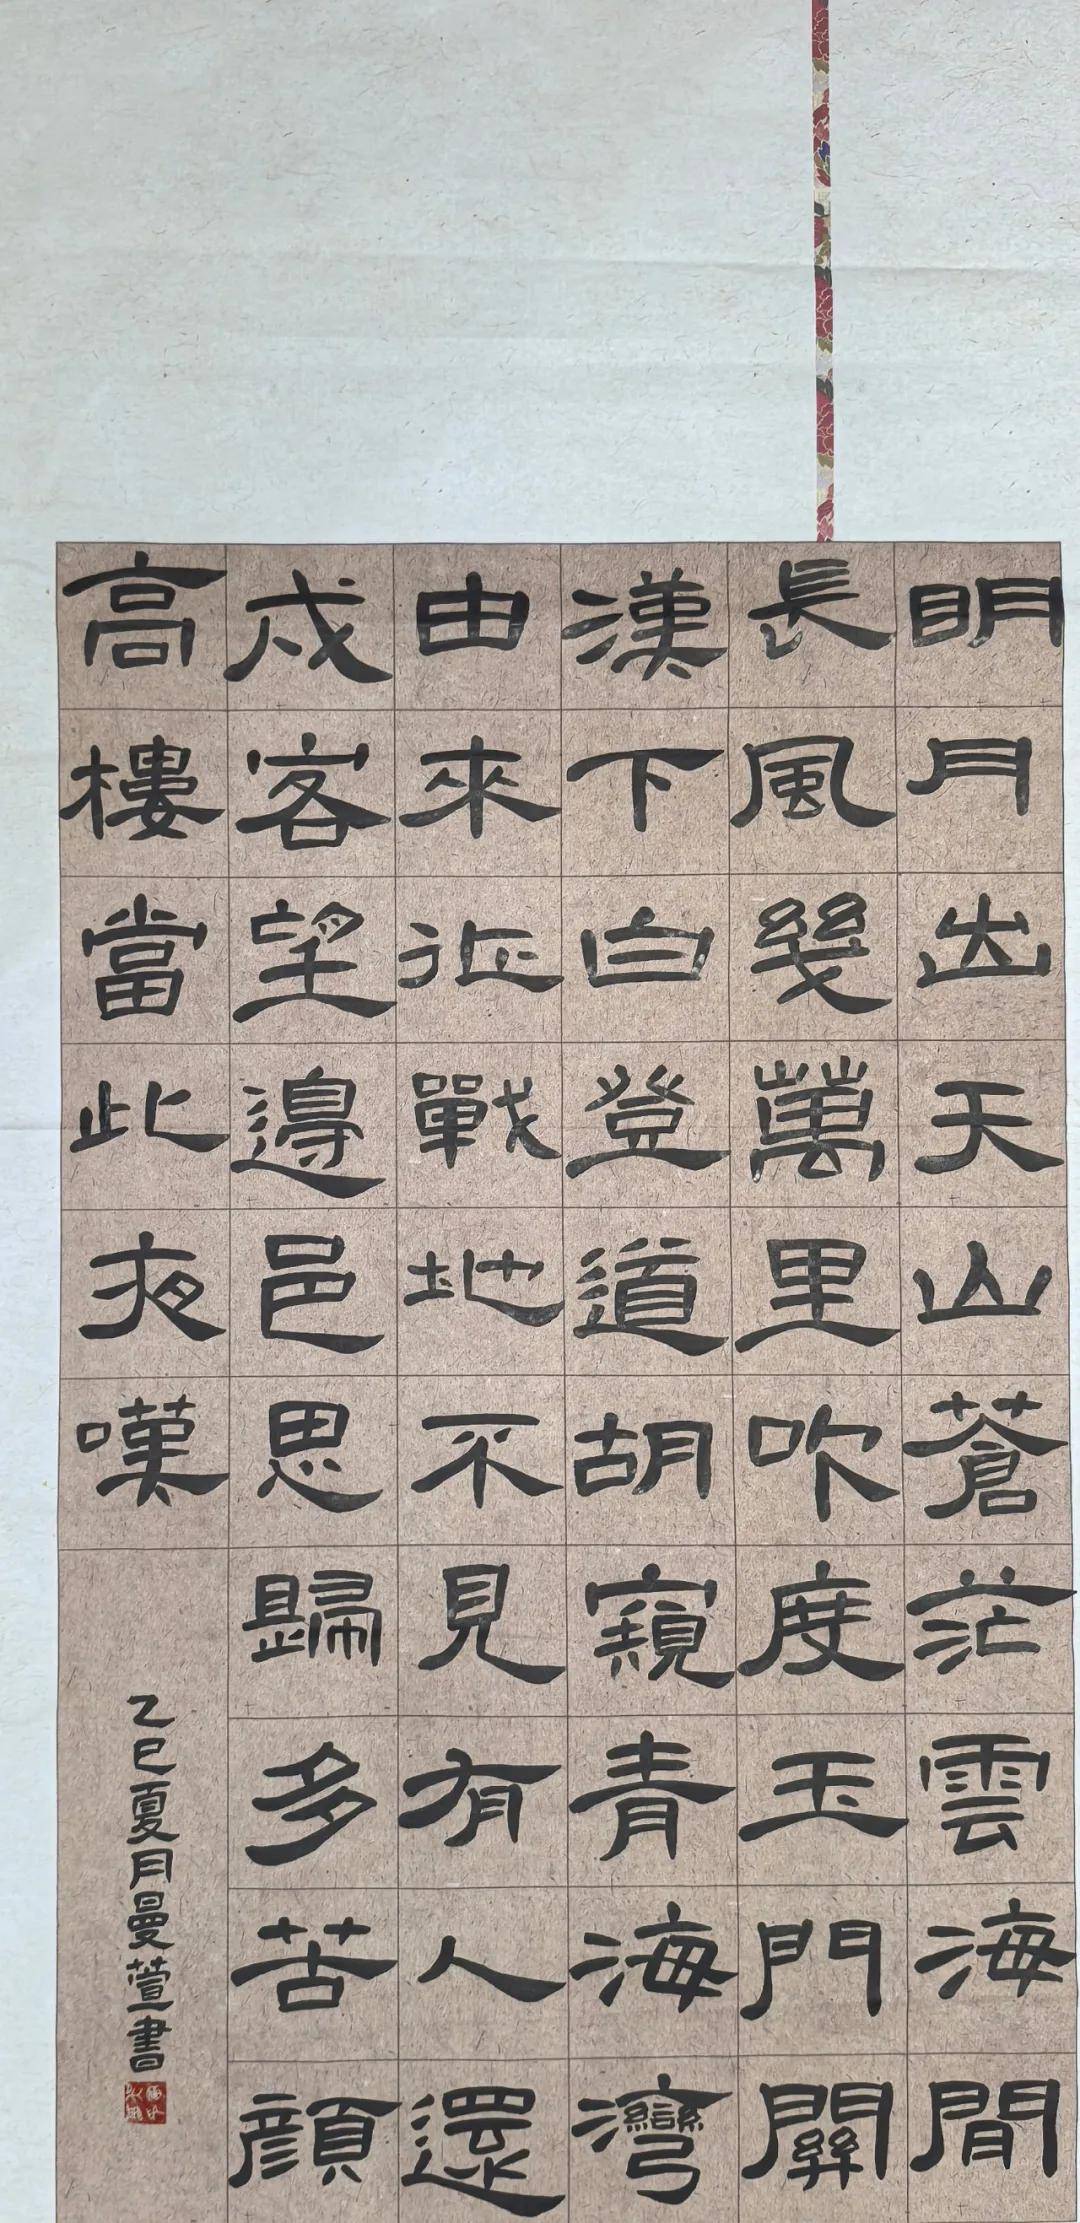 明月出天山蒼茫雲海間
長風幾萬里吹度玉門關
漢下白登道胡窺青海灣
由來征戰地不見有人還
戍客望邊邑思歸多苦顏
高樓當此夜嘆
乙巳夏月曼萱書